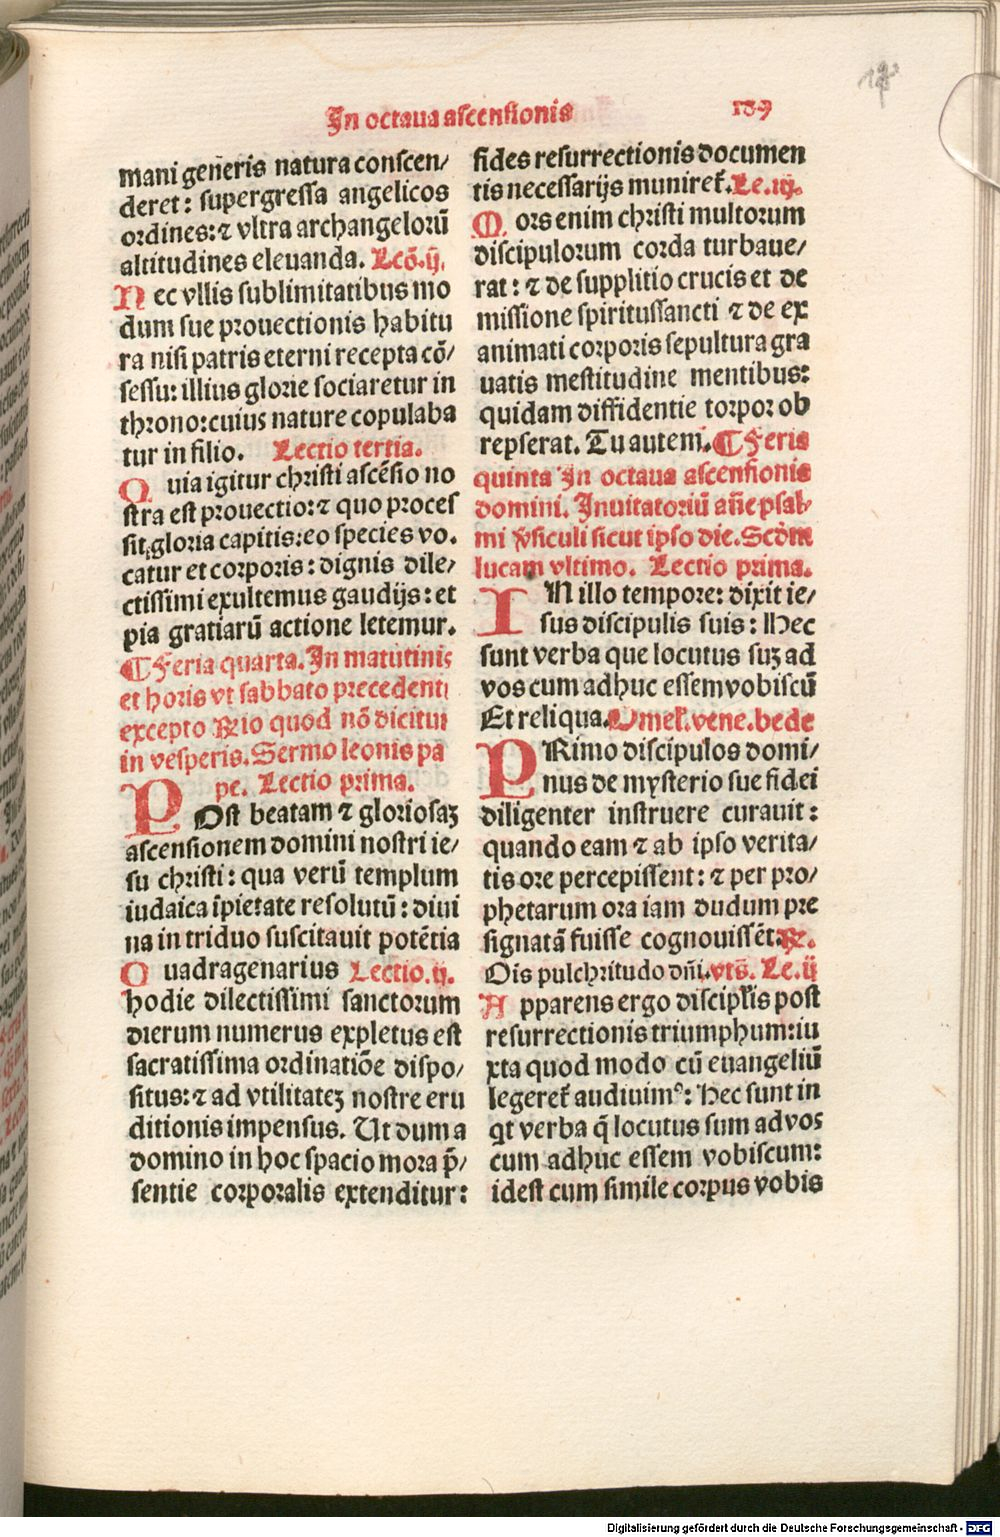 In octaua ascensionis 189
mani generis natura conscen/
deret: supergressa angelicos
ordines: ⁊ vltra archangelorū
altitudines eleuanda. Lcō.ij.
Nec vllis sublimitatibus mo
dum sue prouectionis habitu
ra nisi patris eterni recepta cō/
sessu: illius glorie sociaretur in
throno: cuius nature copulaba
tur in filio. Lectio tertia.
Quia igitur christi ascēsio no
stra est prouectio: ⁊ quo proces
sit gloria capitis: eo species vo.
catur et corporis: dignis dile/
ctissimi exultemus gaudijs: et
pia gratiarū actione letemur.
¶ Feria quarta. In matutinis
et horis vt sabbato precedenti
excepto ℟io quod nō dicitur
in vesperis. Sermo leonis pa
pe. Lectio prima.
POst beatam ⁊ gloriosaꝫ
ascensionem domini nostri ie/
su christi: qua verū templum
iudaica īpietate resolutū: diui
na in triduo suscitauit potētia
Quadragenarius Lectio.ij.
hodie dilectissimi sanctorum
dierum numerus expletus est
sacratissima ordinatiōe dispo/
situs: ⁊ ad vtilitateꝫ nostre eru
ditionis impensus. Ut dum a
domino in hoc spacio mora p̄/
sentie corporalis extenditur:
fides resurrectionis documen
tis necessarijs muniret̄. Le.iij.
Mors enim christi multorum
discipulorum corda turbaue/
rat: ⁊ de supplitio crucis et de
missione spiritussancti ⁊ de ex
animati corporis sepultura gra
uatis mestitudine mentibus:
quidam diffidentie torpor ob
repserat. Tu autem. ¶ Feria
quinta In octaua ascensionis
domini. Inuitatoriū añe psal-
mi v̄siculi sicut ipso die. Scd̄m
lucam vltimo. Lectio prima.
IN illo tempore: dixit ie/
sus discipulis suis: Hec
sunt verba que locutus suꝫ ad
vos cum adhuc essem vobiscū
Et reliqua. Omel̄. vene. bede
PRimo discipulos domi/
nus de mysterio sue fidei
diligenter instruere curauit:
quando eam ⁊ ab ipso verita/
tis ore percepissent: ⁊ per pro/
phetarum ora iam dudum pre
signatā fuisse cognouissēt. ℟.
Ois pulchritudo dn̄i. vts̄. Le.ij
Apparens ergo discipl̄is post
resurrectionis triumphum: iu
xta quod modo cū euangeliū
legeret̄ audiuimꝰ: Hec sunt in
qt verba q̄ locutus sum ad vos
cum adhuc essem vobiscum:
idest cum simile corpus vobis
Digitalisierung gefördert durch die Deutsche Forschungsgemeinschaft - DFG